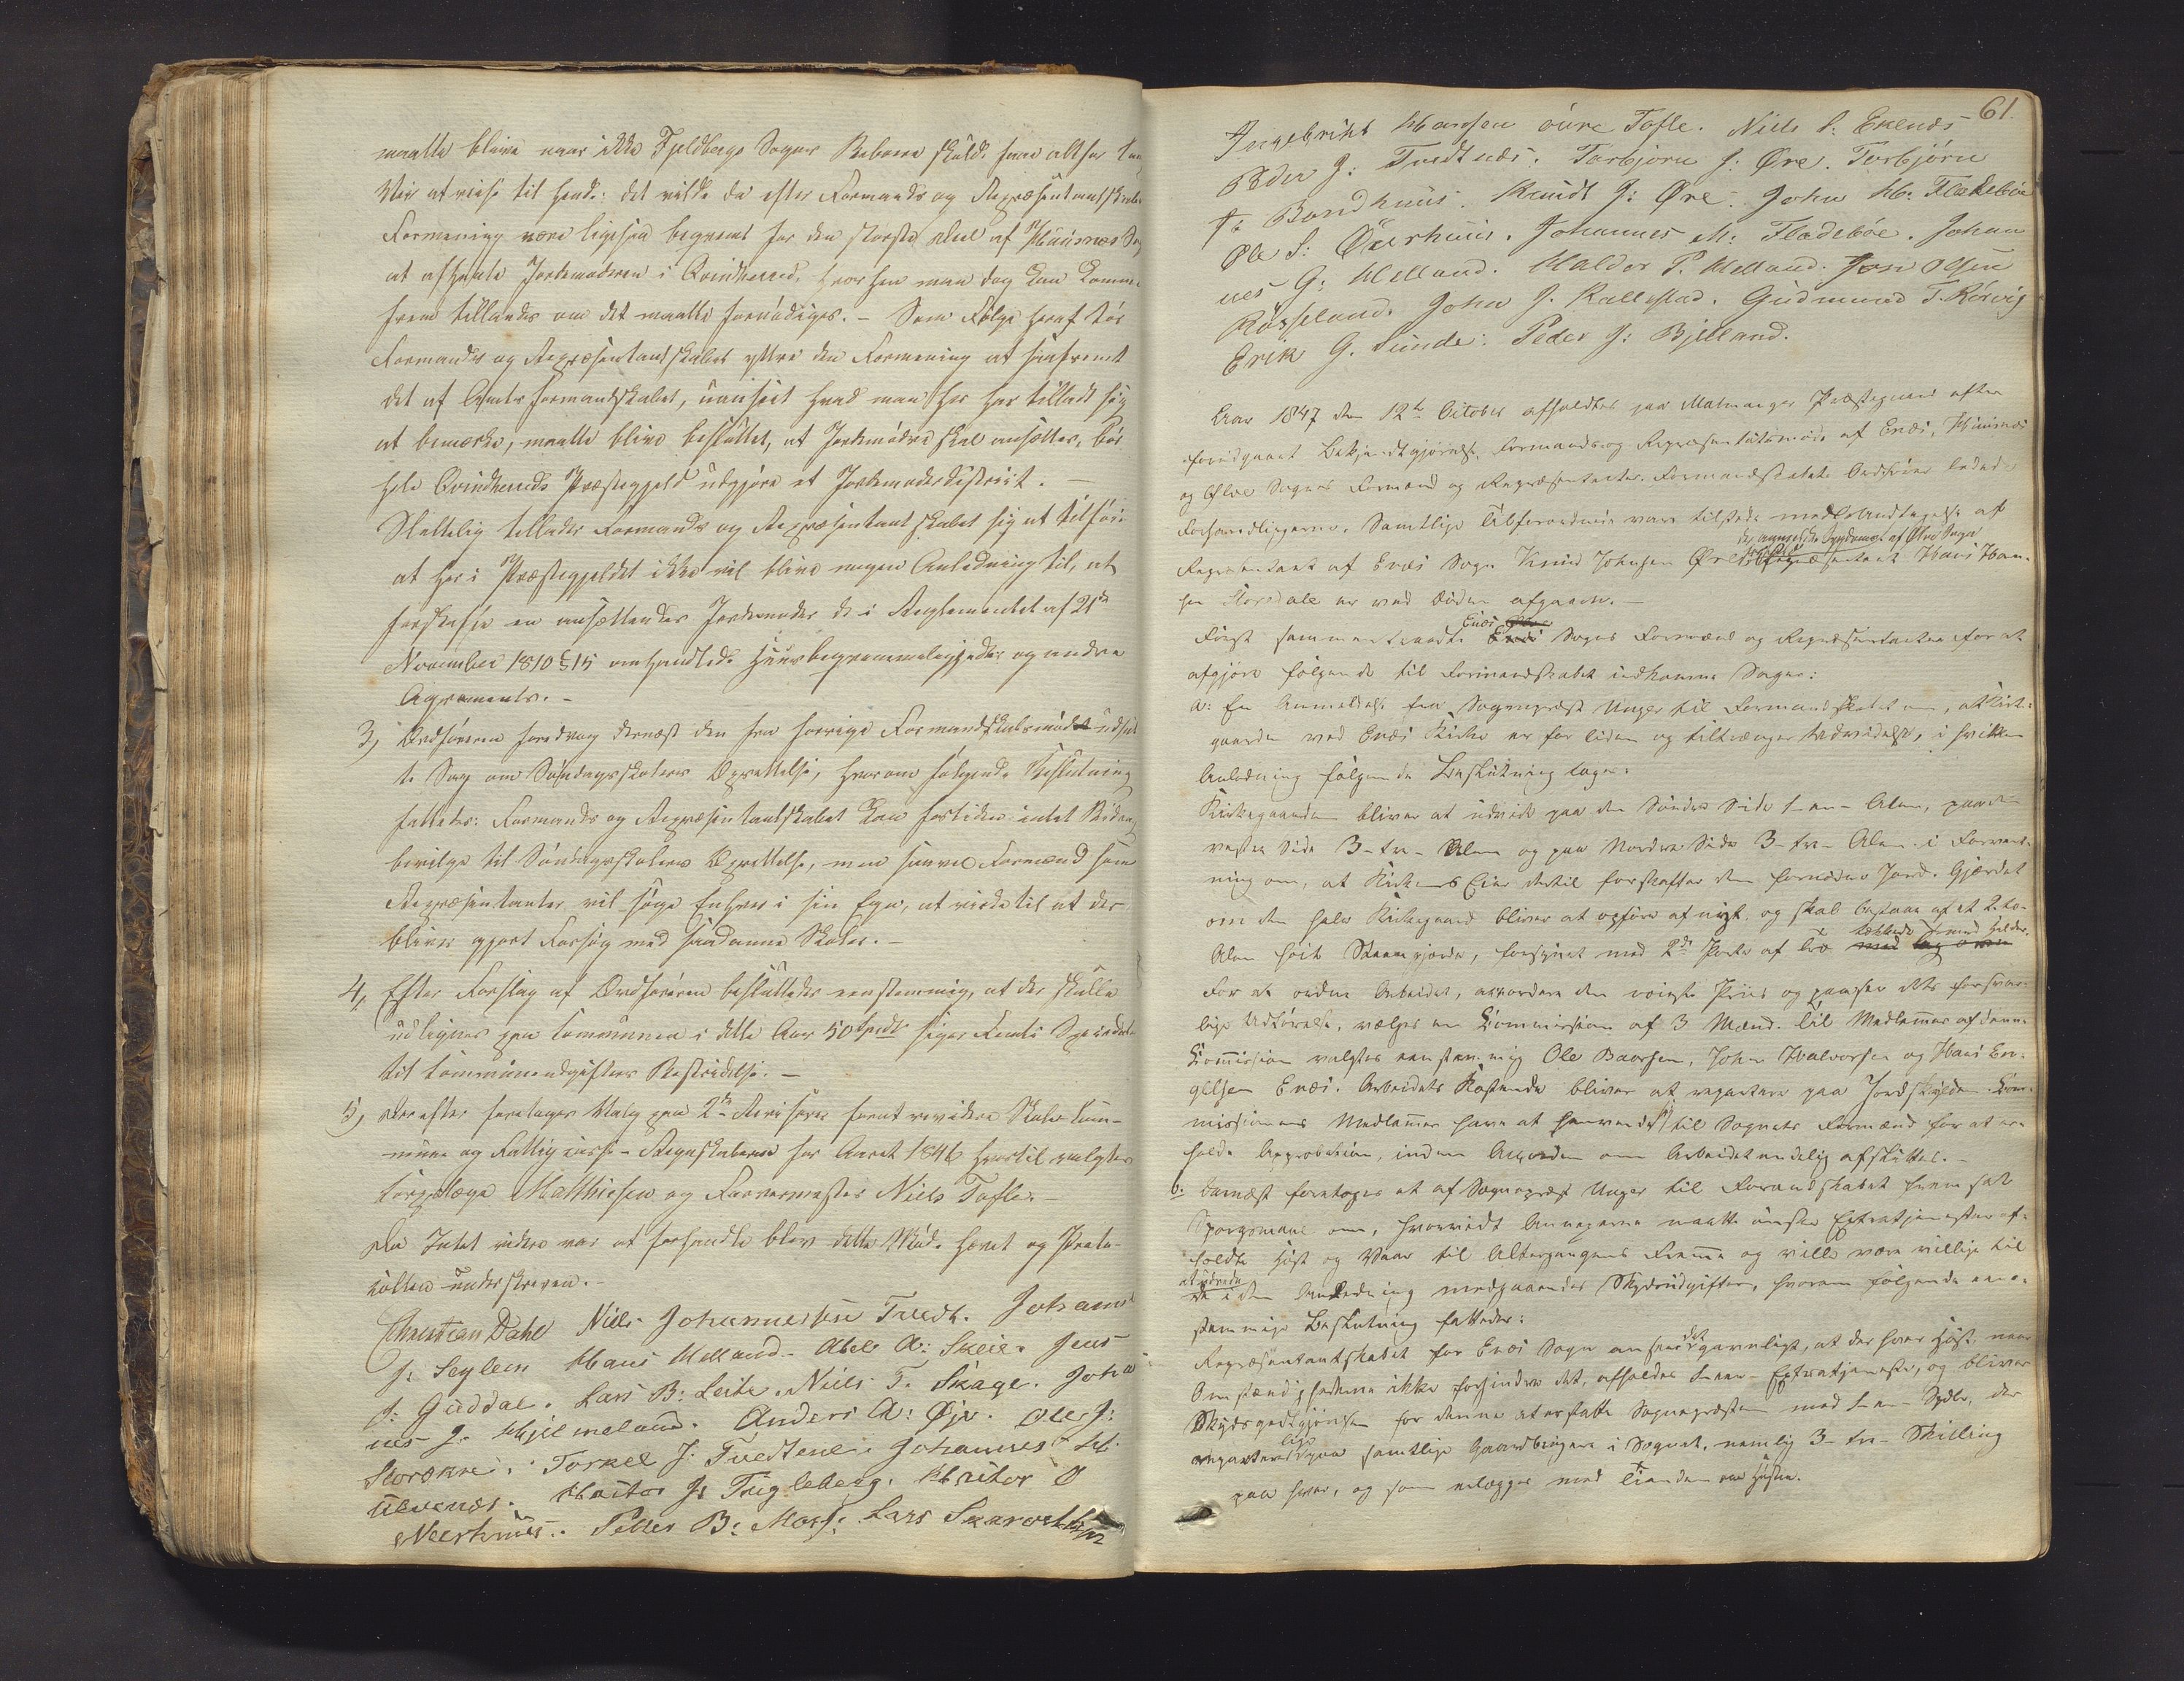 maatte blive naar ikke Fjeldbergs Sogns Beboere skulde have altfor lang
Vei at reise til hende: det vilde da efter Formands og Repræsentantskabets
Formening være ligesaa beqvemt for den største Deel af Huusnæs Sogn
at afhente Jordemoderen i Qvindherred, hvorhen man dog kan komme
frem tillands om det maatte fornødiges. – Som Følge heraf tør
Formands og Repræsentantskabet yttre den Formening at saafremt
det af Amtsformandskabet, uanseet hvad man her har tilladt sig
at bemærke, maatte blive besluttet, at Jordemødre skal ansættes, bør
hele Qvindherreds Præstegjeld udgjøre et Jordemoderdistrict. –
Sluttelig tillader Formands og Repræsentantskabet sig at tilføie
at her i Præstegjeldet ikke vil blive nogen Anledning til, at
forskaffe en ansættendes Jordemoder de i Reglementet af 21de
November 1810 § 15 omhandlede Huusbeqvemmeligheder og andre
Agrements. –
3, Ordføreren foredrog dernæst den fra forrige Formandskabsmøde udsat
te Sag om Søndagsskolers Oprettelse, hvorom følgende Beslutning
fattedes: Formands og Repræsentantskabet kan fortiden intet Bidrag
bevilge til Søndagsskolers Oprettelse, men saavel Formænd som
Repræsentanter vil søge Enhver i sin Egn, at virke til at der
bliver gjort Forsøg med saadanne Skoler. –
4, Efter Forslag af Ordføreren besluttedes eenstemmig, at der skulle
udlignes paa Communen i dette Aar 50 Spdlr siger Femti Speciedaler
til Communeudgifters Bestridelse. –
5, Derefter foretoges Valg paa 2de Revisorer forat revidere Skole Com-
mune og Fattigcasse-Regnskaberne for Aaret 1846 hvortil valgtes
Corpslæge Matthiesen og Farvermester Niels Tofte. –
Da Intet videre var at forhandle blev dette Møde hævet og Proto-
collen underskreven. –
Christian Dahl Niels Johannessen Tvedt. Johannes
J: Seglem Hans Melland. Abel A: Skeie. Jens
J: Guddal. Lars B: Leite. Niels T. Skage. Johan
nes J. Hjelmeland. Anders A: Øye. Ole J:
Storøkre. Torkel J: Tvedtene. Johannes H.
Ulvenæs. Haitor J: Tugleberg. Haitor O
Neerhuus. Peder B: Moss. Lars Skarvet
61.
Ingebrikt Hansen øvre Tofte. Niels S: Enenæs
Peder J: Tvedtnæs. Torbjørn J: Øre. Torbjørn
T: Bondhuus. Knudt J: Øre. John H: Fladebøe
Ole S: Øverhuus. Johannes M: Fladebøe. Johan
nes G: Melland. Haldor P. Melland. Jon Olsen
Røsseland. John J. Kallestad. Gudmund T. Rørvig
Erik G. Sunde. Peder J: Bjelland.
Aar 1847 den 12te October afholdtes paa Malmanger Præstegaard efter
foregaaet Bekjendtgjørelse, Formands og Repræsentantmøde af Enæs, Huusnæs
og Ølve Sognes Formænd og Repræsentanter. Formandskabets Ordfører ledede
Forhandlingerne. Samtlige Tilforordnede vare tilstede med Undtagelse af
der anmeldte Sygdom og af Ølve Sogn
Repræsentant af Enæs Sogn Knud Johnsen Øre Repræsentant Hans Han-
sen Storedale er ved Døden afgaaen. –
Enæs
Først sammentraadte Sogns Formænd og Repræsentanter for at
afgjøre følgende til Formandskabet indkomne Sager:
a: En Anmeldelse fra Sognepræst Unger til Formandskabet om, at Kirke-
gaarden ved Enæs Kirke er for liden og tiltrænger Udvidelse, i hvilken
Anledning følgende Beslutning toges:
Kirkegaarden bliver at udvide paa den Søndre Side 1-en-Alen, paa den
vestre Side 3-tre-Alen og paa Nordre Side 3-tre-Alen i Forvent-
ning om, at Kirkens Eier dertil forskaffer den fornødne Jord. Gjærdet
om den hele Kirkegaard bliver at opføre af nyt, og skal bestaae af et 2 to
Alen høit Steengjærde, forsynet med 2de Porte af Træ
For at ordne Arbeidet, accordere den nøieste Priis og paasee dets forsvar-
lige Udførelse, vælges en Commission af 3 Mænd. Til Medlemmer af denne
Commission valgtes eenstemmig Ole Baarsen, John Halvorsen og Hans En-
gelsen Enæs. Arbeidets Kostende bliver at repartere paa Jordskylden. Com-
missionens Medlemmer have at henvende sig til Sognets Formænd for at er-
holde Approbation, inden Accorden om Arbeidet endelig afsluttes. –
b: Dernæst foretoges et af Sognepræst Unger til Formandskabet fremsat
Spørgsmaal om, hvorvidt Annexerne maatte ønske Extratjenester af-
holdte Høst og Vaar til Altergangens Fremme og ville være villige til
at udrede
de i den Anledning medgaaende Skydsudgifter, hvorom følgende een-
stemmige Beslutning fattedes:
Repræsentantskabet for Enæs Sogn anseer det gavnligt, at der hver Høst, naar
Omstændighederne ikke forhindre det, afholdes 1-een-Extratjeneste, og bliver
Skydsgodtgjørelsen for denne at erstatte Sognepræsten med 1-en-Spdlr, der
reparteres lige paa samtlige Gaardbrugere i Sognet, nemlig 3-tre-Skilling
paa hver, og som erlægges med Tienden om Høsten.